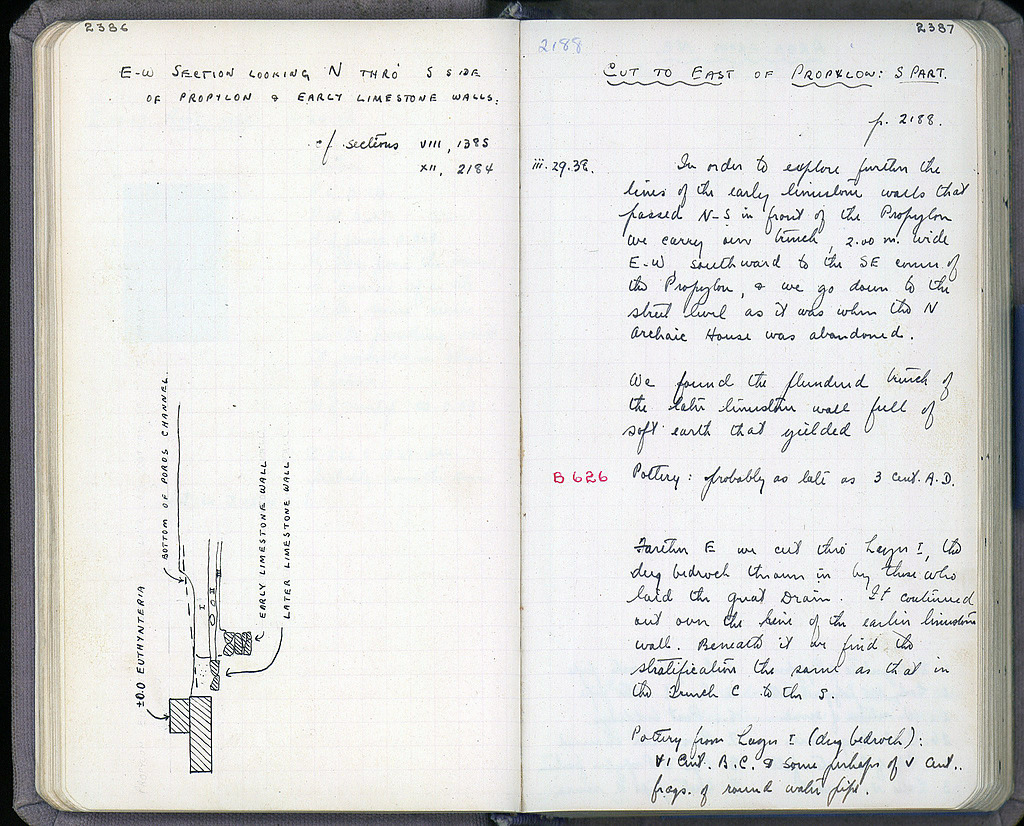 2386
E-W SECTION LOOKING N THRO' S SIDE
OF PROPYLON & EARLY LIMESTONE WALLS.
cf sections VIII, 1385
XII, 2184
BOTTOM OF POROS CHANNEL.
EARLY LIMESTONE WALL
LATER LIMESTONE WALL.
±0.0 EUTHYNTERIA
I
II
III
2387
2188
CUT TO EAST OF PROPYLON: S PART.
p. 2188.
iii.29.38. In order to explore further the
lines of the early limestone walls that
passed N-S in front of the Propylon
we carry our trench, 2.00 m. wide
E-W, southward to the SE corner of
the Propylon, & we go down to the
street level as it was when the N
Archaic House was abandoned.
We found the plundered trench of
the later limestone wall full of
soft earth that yielded
B 626 Pottery: probably as late as 3 cent. A.D.
Farther E we cut thro' Layer I, the
dug bedrock thrown in by those who
laid the great Drain. It continued
out over the line of the earlier limestone
wall. Beneath it we find the
stratification the same as that in
the Trench C to the S.
Pottery from Layer I (dug bedrock):
VI cent. B.C. & some perhaps of V cent..
frags. of round water pipe.